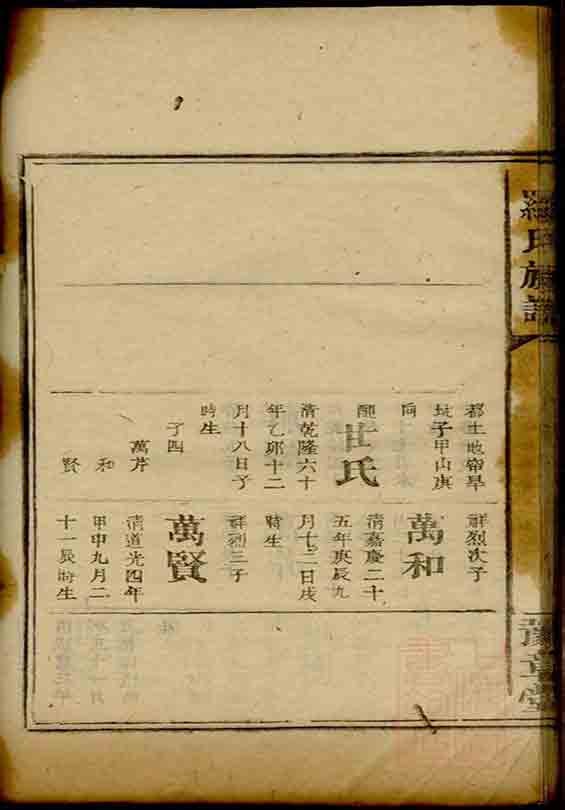 羅氏族譜
豫章堂
都土地帝旱
坟子甲山庚
向
配甘氏
清乾隆六十
年乙卯十二
月十八日子
時生
子四
萬芹
和
賢
祥烈次子
萬和
清嘉慶二十
五年庚辰九
月十二日戌
時生
祥烈三子
萬賢
清道光四年
甲申九月二
十一辰時生